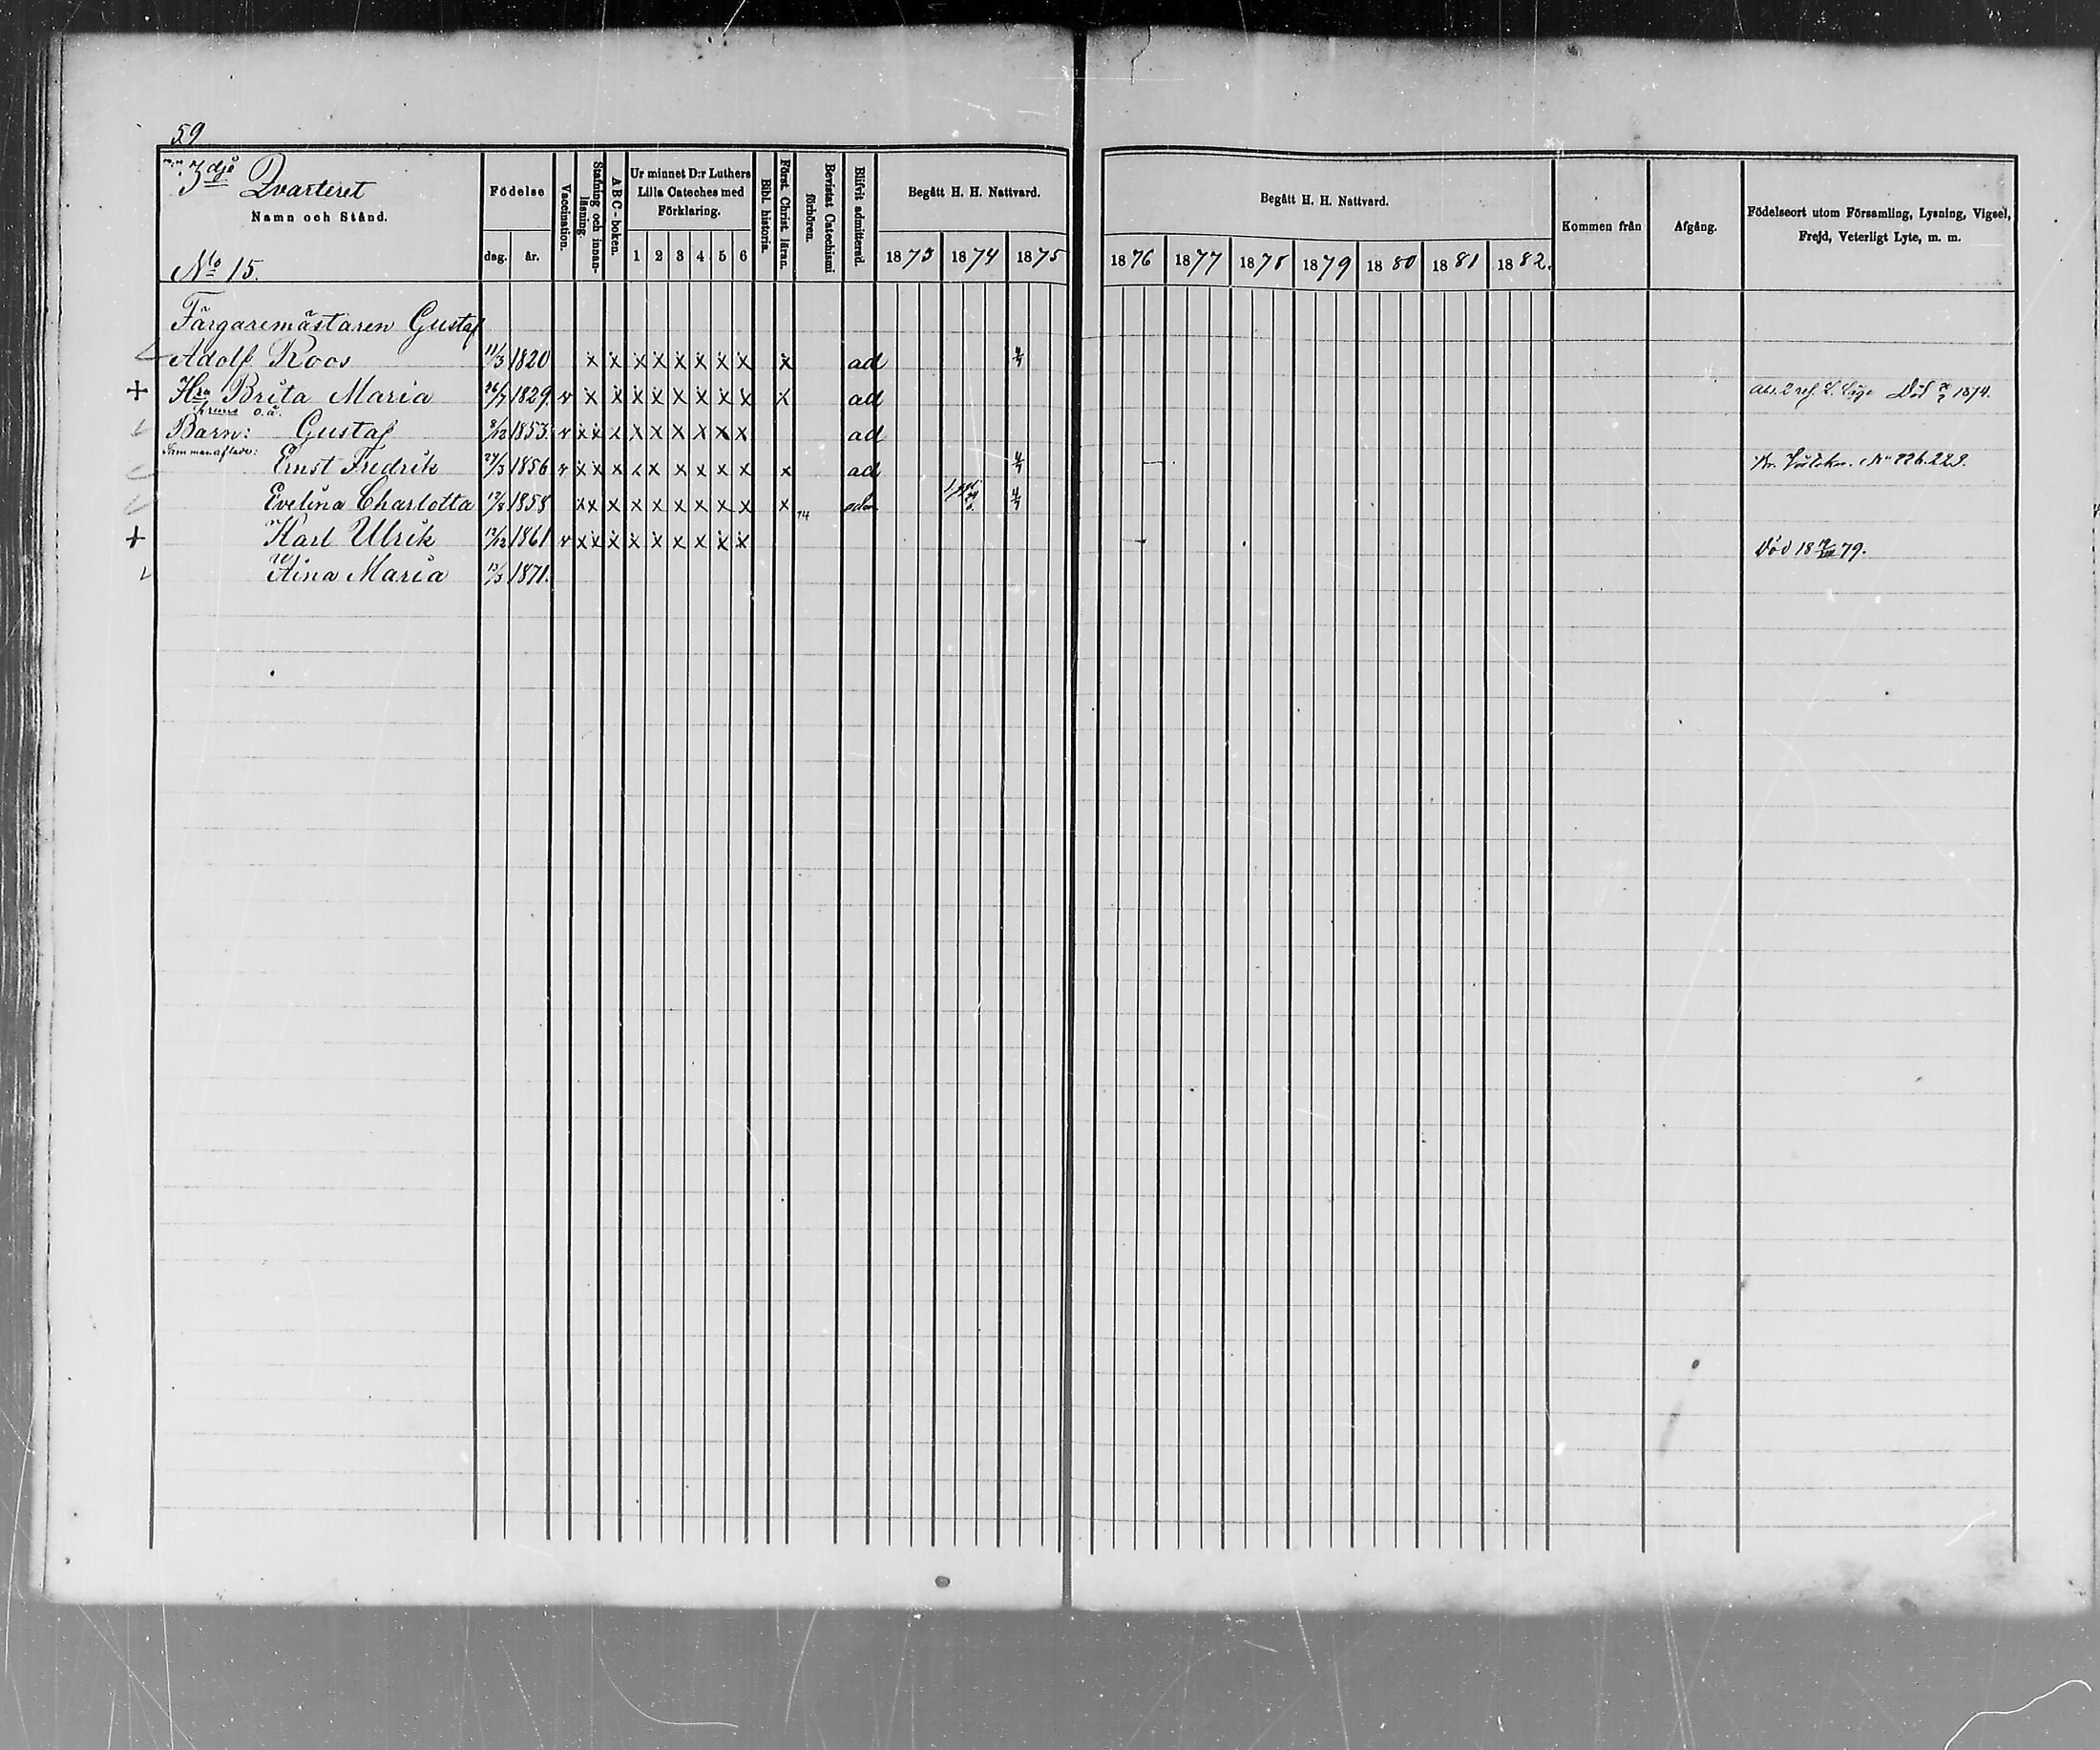 59
3dje Qvarteret
Namn och Stånd.
No 15.
Födelse
dag. år.
Vaccination.
Stafning och innan-läsning.
A B C-boken.
Ur minnet D:r Luthers
Lilla Cateches med
Förklaring.
1 2 3 4 5 6
Bibl. historia.
Först. Christ. läran.
Bevistat Catechismi förhören.
Blifvit admitterad.
Begått H. H. Nattvard.
1873 1874 1875
Begått H. H. Nattvard.
1876 1877 1878 1879 1880 1881 1882.
Kommen från
Afgång.
Födelseort utom Församling, Lysning, Vigsel,
Frejd, Veterligt Lyte, m. m.
Färgaremästaren Gustaf
Adolf Roos 11/3 1820 x x x x x x x x x ad 4/7
+ Hra Brita Maria 26/7 1829. v x x x x x x x x x ad Död 1874.
o.ä.
Barn: Gustaf 1853. v x x x x x x x x x ad
Sammanaflade:
Ernst Fredrik 24/3 1856 v x x x x x x x x x x ad 4/7 No 226.229.
Evelina Charlotta 1858 x x x x x x x x x x 74 adm. 4/7
+ Karl Ulrik 1861 v x x x x x x x x x Död 18 79.
Aina Maria 1871.